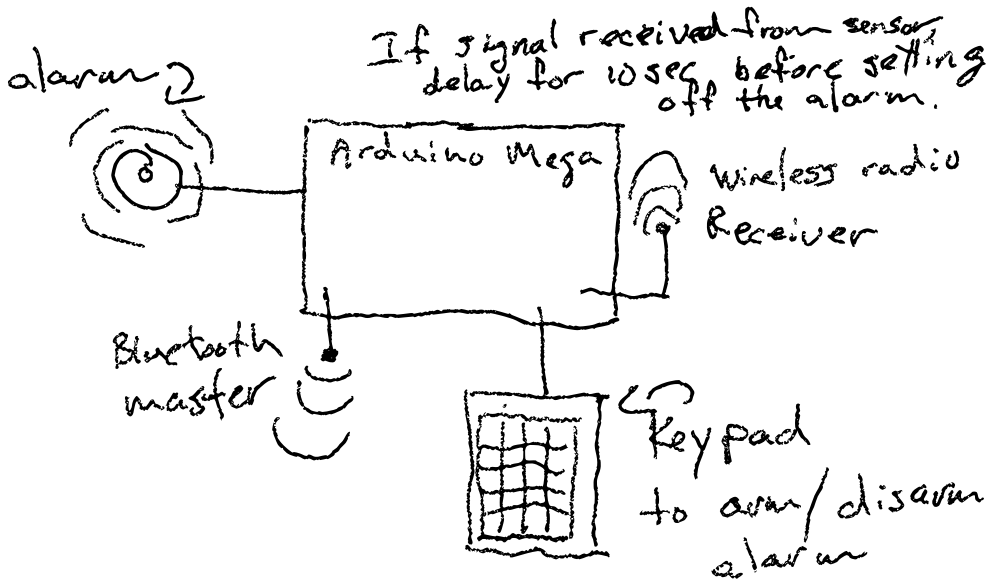 If signal received from sensor,
delay for 10 sec before setting
off the alarm.
alarm
Arduino Mega
Wireless radio
Receiver
Bluetooth
master
Keypad
to arm/disarm
alarm